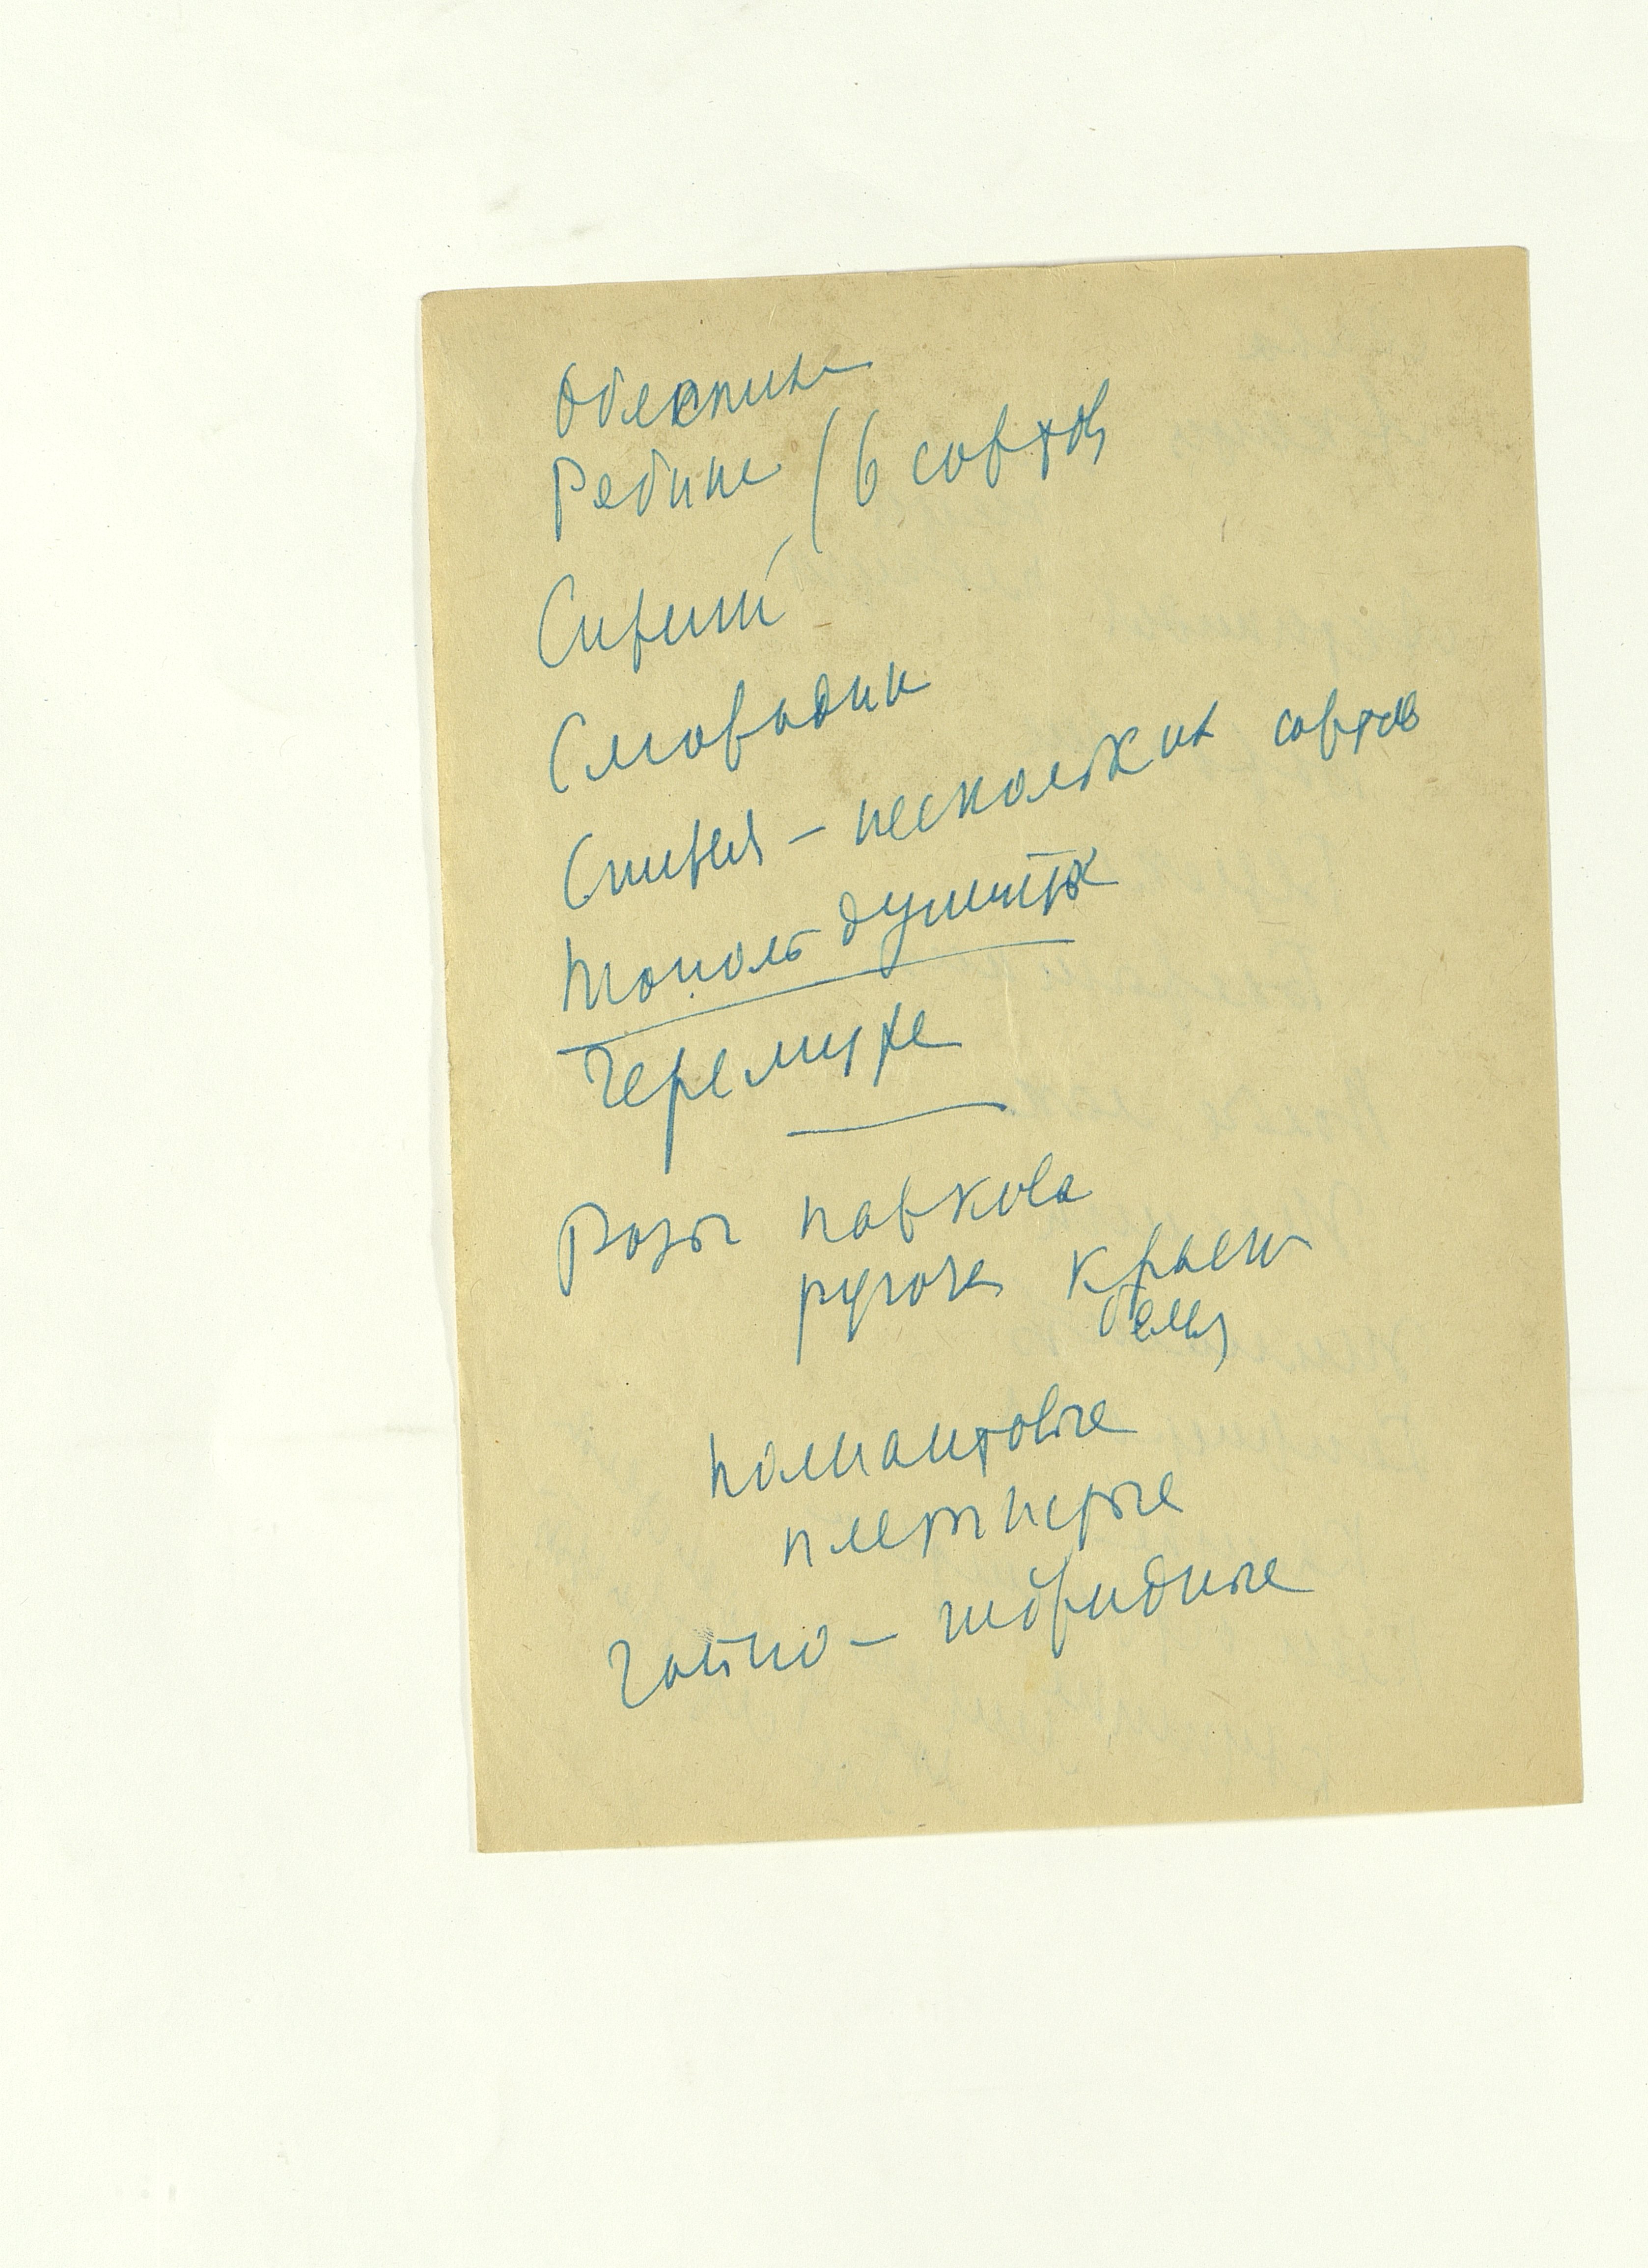 Облепиха
Рябина (6 сортов
Сирень
Смородина
Спирея – нескольких сортов
Тополь душистый
Черемуха
Розы парковая
ругоза красн
белая
полиантовые
плетистые
Чайно – гибридные